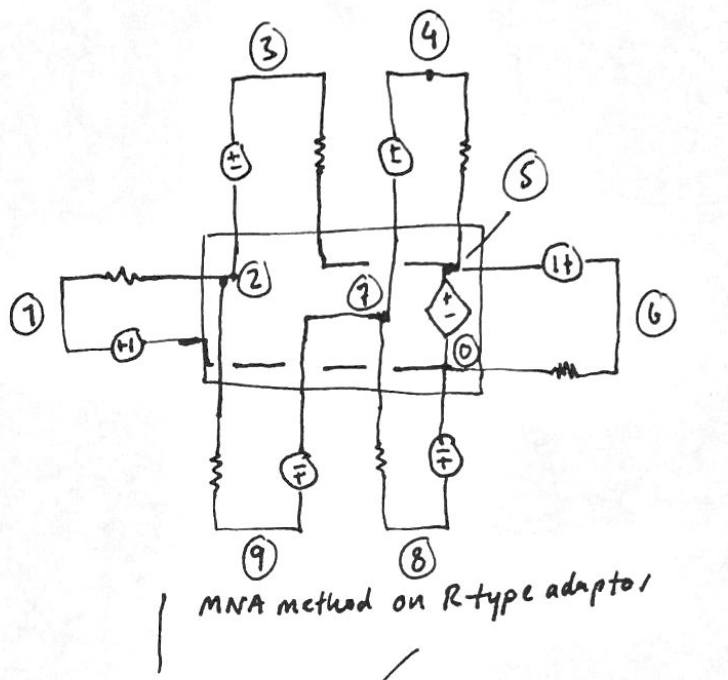 3
4
±
I
5
2
7
1
1+
+
-
6
+1
0
∓
∓
9
8
MNA method on R type adaptor